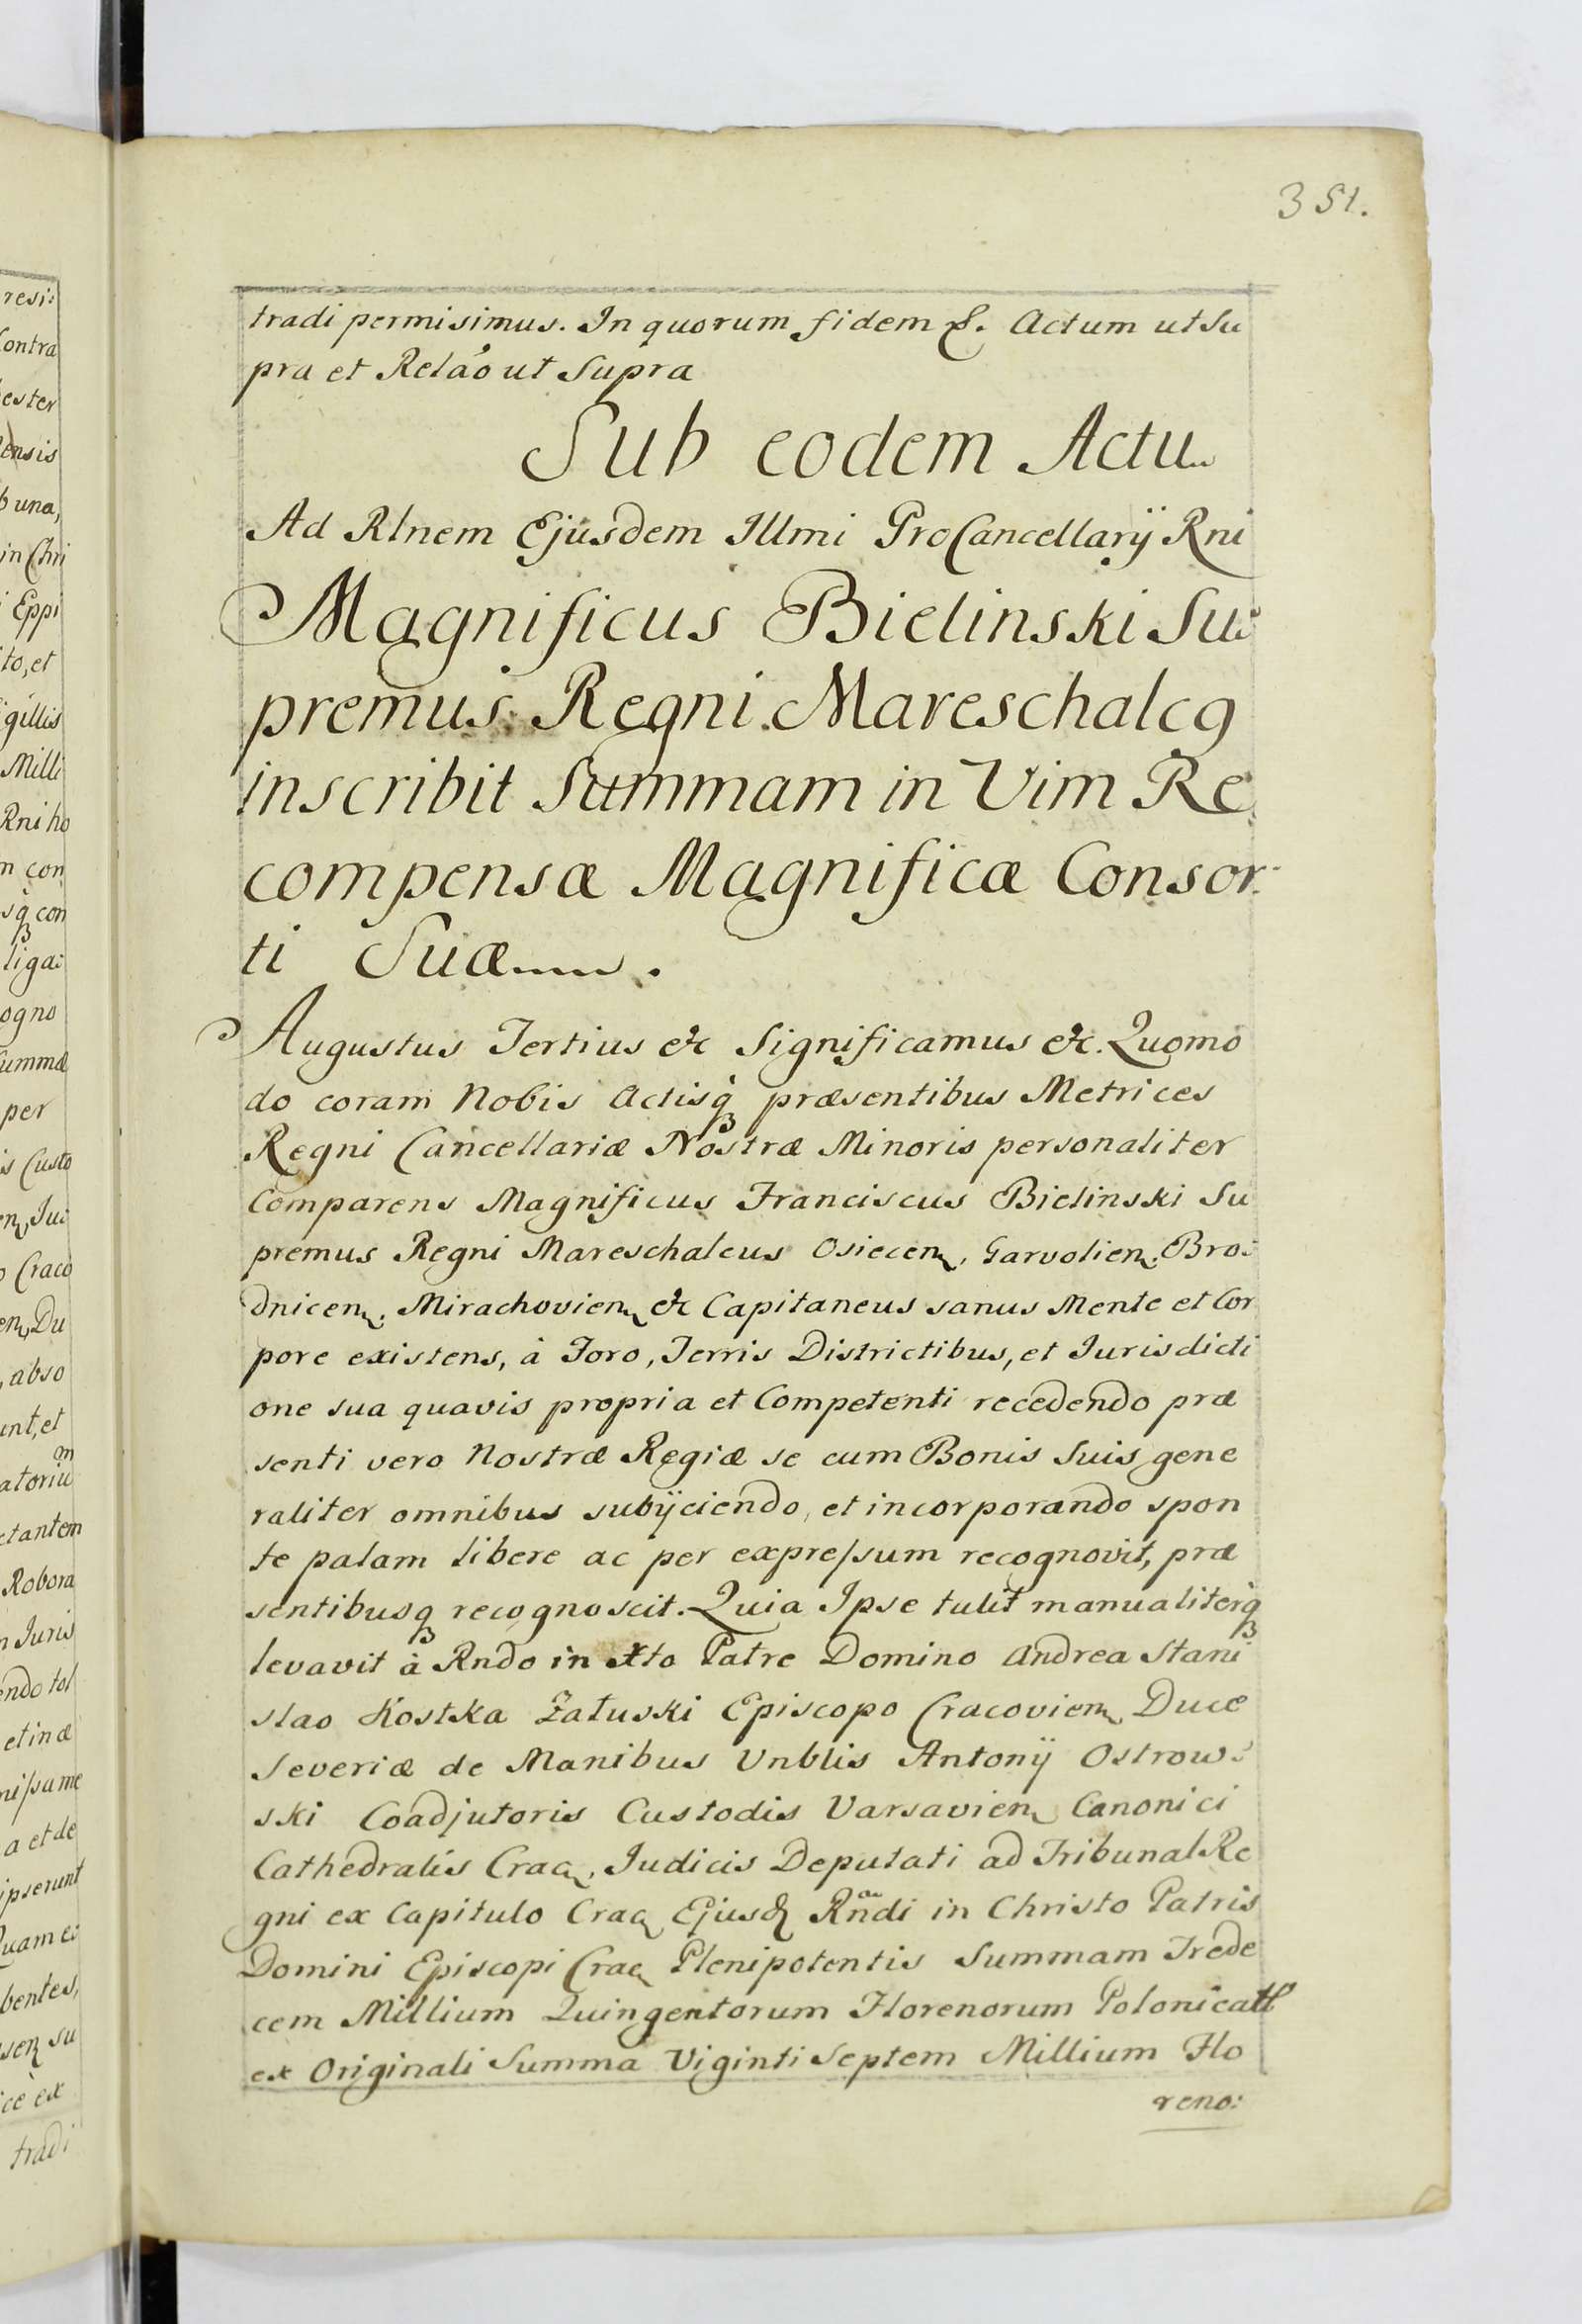 351.
resi:
tradi permisimus. In quorum fidem &. Actum ut Su
pra et Relaõ ut Supra
Sub eodem Actu
Ad Rlnem Ejusdem Illmi ProCancellarÿ Rni
Magnificus Bielinski Su:
premus Regni Mareschalcq
inscribit Summam in Vim Re
compensæ Magnificæ Consor
ti Suæ.
Augustus Tertius &c Significamus &c. Quomo
do coram Nobis Actisq præsentibus Metrices
Regni Cancellariæ Nostræ Minoris personaliter
Comparens Magnificus Franciscus Bielinski Su
premus Regni Mareschalcus Osiecen, Garvolien. Bro:
dnicen. Mirachovien &c Capitaneus sanus Mente et Cor
pore existens, à Foro, Terris Districtibus, et Iurisdicti
one sua quavis propria et Competenti recedendo præ
senti vero Nostræ Regiæ se cum Bonis Suis gene
raliter omnibus subÿciendo, et incorporando spon
te palam libere ac per expressum recognovit, præ
sentibusq recognoscit. Quia Ipse tulit manualiterq
levavit à Rndo in Xto Patre Domino Andrea Stani
slao Kostka Załuski Episcopo Cracovien Duce
Severiæ de Manibus Vnblis Antonÿ Ostrow:
ski Coadjutoris Custodis Varsavien Canonici
Cathedralis Crac, Iudicis Deputati ad Tribunal Re
gni ex Capitulo Crac Ejusd Rndi in Christo Patris
Domini Episcopi Crac Plenipotentis Summam Trede
cem Millium Quingentorum Florenorum Polonical
ex Originali Summa Viginti Septem Millium Flo
reno:
ontra
ester
ensis
b una,
in Chri
Eppi
to, et
gillis
Milli
Rni ho
n con
sq con
liga:
ogno
Summæ
per
is Custo
en, Iu:
o Craco
en, Du
, abso
unt, et
atoriu
m
ctantem
Robora
n Iuris
endo tol
et in æ
nissime
a et de
ipserunt
Quam ei
bentes,
sen su
ce ex
tradi